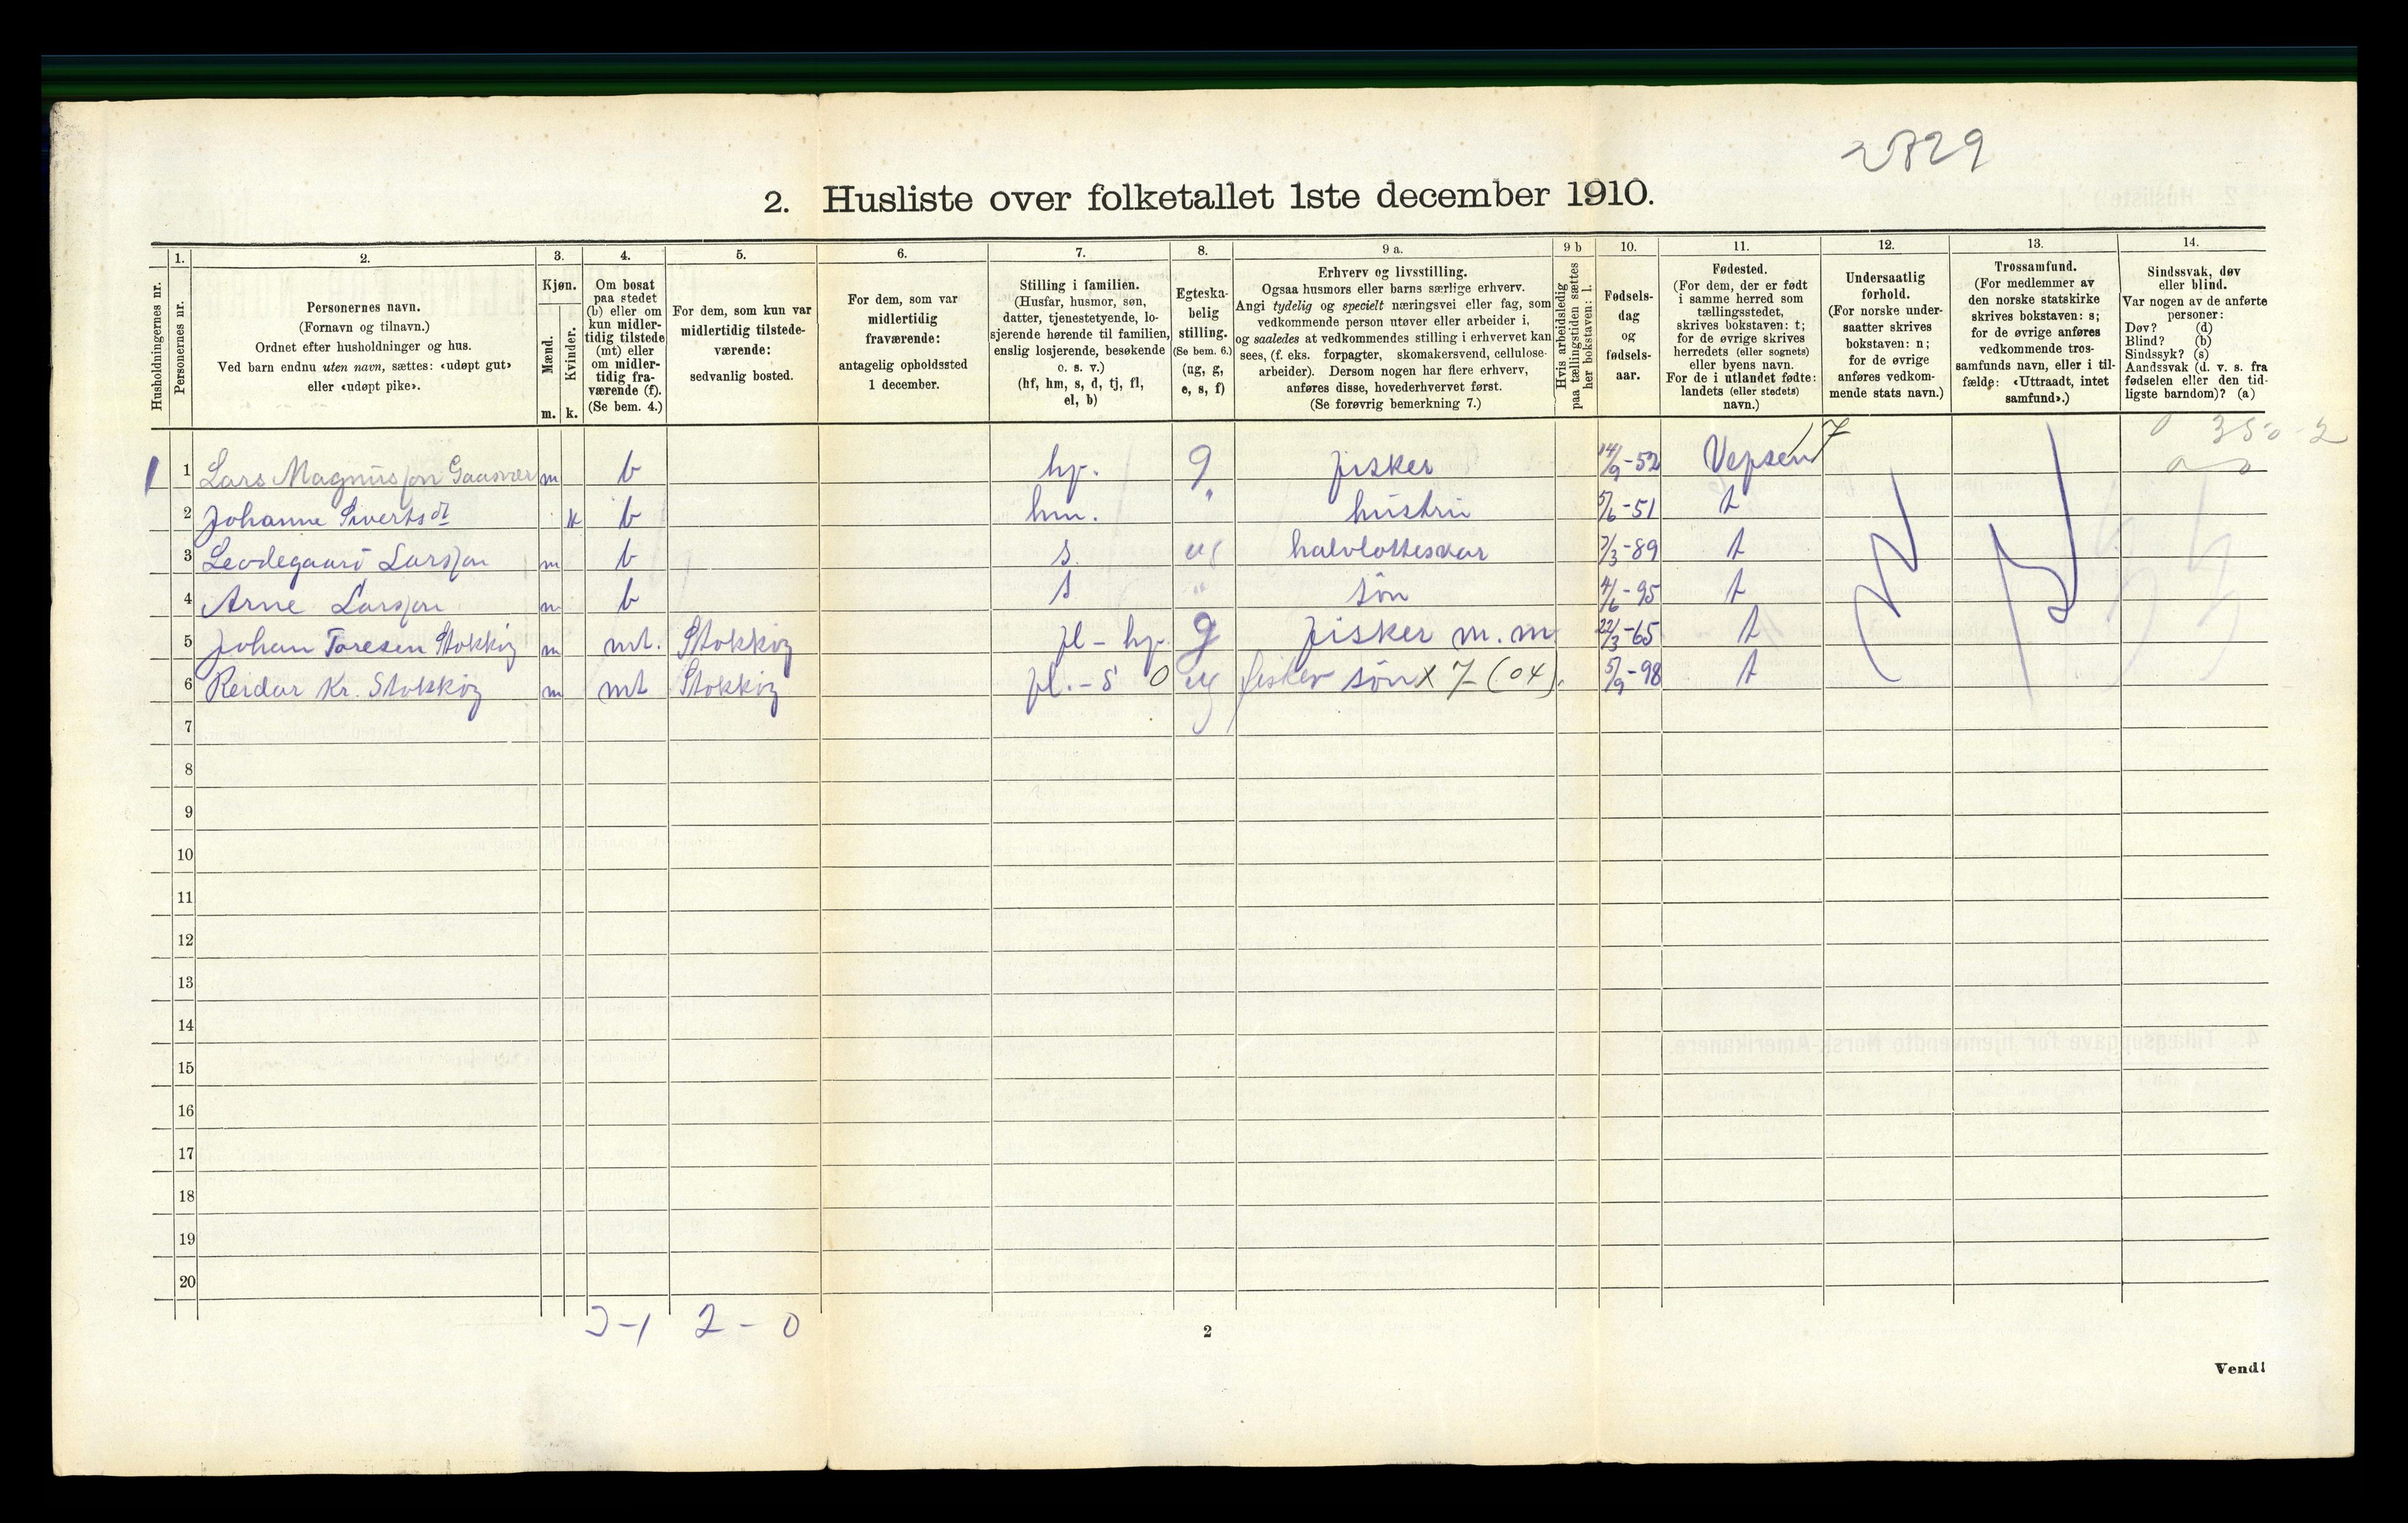 2829
2. Husliste over folketallet 1ste december 1910.
Husholdningernes nr.
1.
Personernes nr.
2.
Personernes navn.
(Fornavn og tilnavn.)
Ordnet efter husholdninger og hus.
Ved barn endnu uten navn, sættes: «udøpt gut»
eller «udøpt pike».
3.
Kjøn.
Mænd.
Kvinder.
m. k.
4.
Om bosat
paa stedet
(b) eller om
kun midler-
tidig tilstede
(mt) eller
om midler-
tidig fra-
værende (f).
(Se bem. 4.)
5.
For dem, som kun var
midlertidig tilstede-
værende:
sedvanlig bosted.
6.
For dem, som var
midlertidig
fraværende:
antagelig opholdssted
1 december.
7.
Stilling i familien.
(Husfar, husmor, søn,
datter, tjenestetyende, lo-
sjerende hørende til familien,
enslig losjerende, besøkende
o. s. v.)
(hf, hm, s, d, tj, fl,
el, b)
8.
Egteska-
belig
stilling.
(Se bem. 6.)
(ug, g,
e, s, f)
9 a.
Erhverv og livsstilling.
Ogsaa husmors eller barns særlige erhverv.
Angi tydelig og specielt næringsvei eller fag, som
vedkommende person utøver eller arbeider i,
og saaledes at vedkommendes stilling i erhvervet kan
sees, (f. eks. forpagter, skomakersvend, cellulose-
arbeider). Dersom nogen har flere erhverv,
anføres disse, hovederhvervet først.
(Se forøvrig bemerkning 7.)
9 b
Hvis arbeidsledig
paa tællingstiden sættes
her bokstaven: l.
10.
Fødsels-
dag
og
fødsels-
aar.
11.
Fødested.
(For dem, der er født
i samme herred som
tællingsstedet,
skrives bokstaven: t;
for de øvrige skrives
herredets (eller sognets)
eller byens navn.
For de i utlandet fødte:
landets (eller stedets)
navn.)
12.
Undersaatlig
forhold.
(For norske under-
saatter skrives
bokstaven: n;
for de øvrige
anføres vedkom-
mende stats navn.)
13.
Trossamfund.
(For medlemmer av
den norske statskirke
skrives bokstaven: s;
for de øvrige anføres
vedkommende tros-
samfunds navn, eller i til-
fælde: «Uttraadt, intet
samfund».)
14.
Sindssvak, døv
eller blind.
Var nogen av de anførte
personer:
Døv? (d)
Blind? (b)
Sindssyk? (s)
Aandssvak (d. v. s. fra
fødselen eller den tid-
ligste barndom)? (a)
0 350-2
1 1 Lars Magnusson Gaasvær m b hf. g fisker 14/9-52 Vefsen 7
2 Johanne Sivertsdt k b hm. " hustru 5/6-51 t
3 Leodegaard Larsson m b s. ug halvlotteskar 7/3-89 t
4 Arne Larsson m b s " søn 4/6-95 t
5 Johan Toresen Stokkøy m mt. Stokkøy fl - hf. g fisker m.m. 22/3-65 t
6 Reidar Kr. Stokkøy m mt Stokkøy fl. - s 0 ug fisker søn x 7 - (04). 5/9-98 t
7
8
9
10
11
12
13
14
15
16
17
18
19
20
3-1 2-0
2
Vend!